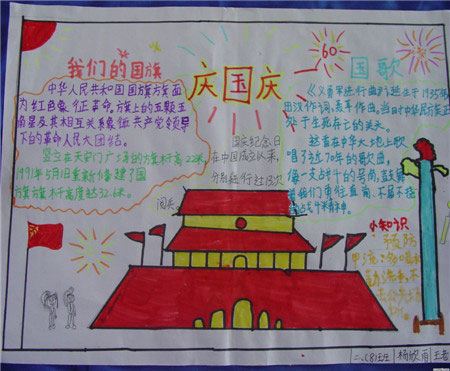 我们的国旗
中华人民共和国国旗旗面
为红色象征革命。旗上的五颗五
角星及其相互关系象征共产党领导
下的革命人民大团结。
竖立在天安门广场的旗杆高22米,
1991年5月旧重新修建了国
旗旗杆高度达32.6米。
庆国庆
60
国庆纪念日
在中国成立以来,
分别
国歌
《义勇军进行曲》诞生于1935年
田汉作词,聂耳作曲。当时中华民族正
处于生死存亡的关头。
这首在中华大地上歌
唱了近70年的歌曲,
像一支战斗的号角,鼓舞
小知识
预防
甲流
二、(8)班
杨欣雨